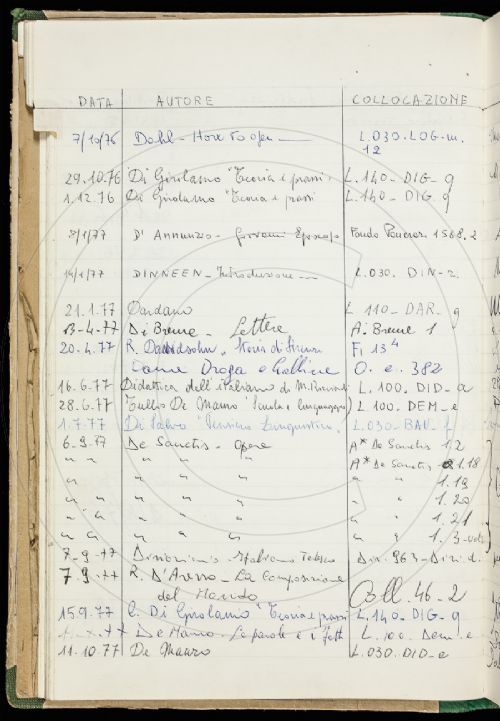 DATA AUTORE COLLOCAZIONE
7/10/76 Dahl - L.030.LOG.m.
12
29.10.76 Di Girolamo "Teoria e prassi" L.140-DIG-g
1.12.76 Di Girolamo "Teoria e prassi L.140-DIG.g
8/1/77 D'Annunzio - Giovanni Episcopo Fondo Pancrazi 1588.2
14/1/77 DINNEEN - Introduzione - L.030. DIN-2.
21.1.77 Dardano L 110-DAR-g
13-4-77 Di Breme - Lettere A. Breme 1
20.4.77 R. Davidsohn, Storia di Firenze Fi 13 4
Droga e O. e. 382
16.6.77 Didattica dell'italiano di M. L. 100. DID-a
28.6.77 Tullio De Mauro Scuola e linguaggio) L 100. DEM-e
1.7.77 Di Salvo L.030-BAU.
6.9.77 De Sanctis - Opere A* De Sanctis 12
" " " " " A* De Sanctis 1.18
" " " " " " " 1.19
" " " " " " " 1.20
" " " " " " " 1.21
" " " " " " " 1.3-
7-9-77 Dizionario Italiano Tedesco Diz. 963-Dizi.d.
7.9.77 R. D'Arezzo - La Composizione
del Mondo Coll. 46-2
15.9.77 C. Di Girolamo "Teoria e prassi L.140-DIG-g
De Mauro - Le parole e i fatti L.100. Dem-e
11.10.77 De Mauro L.030.DID-e